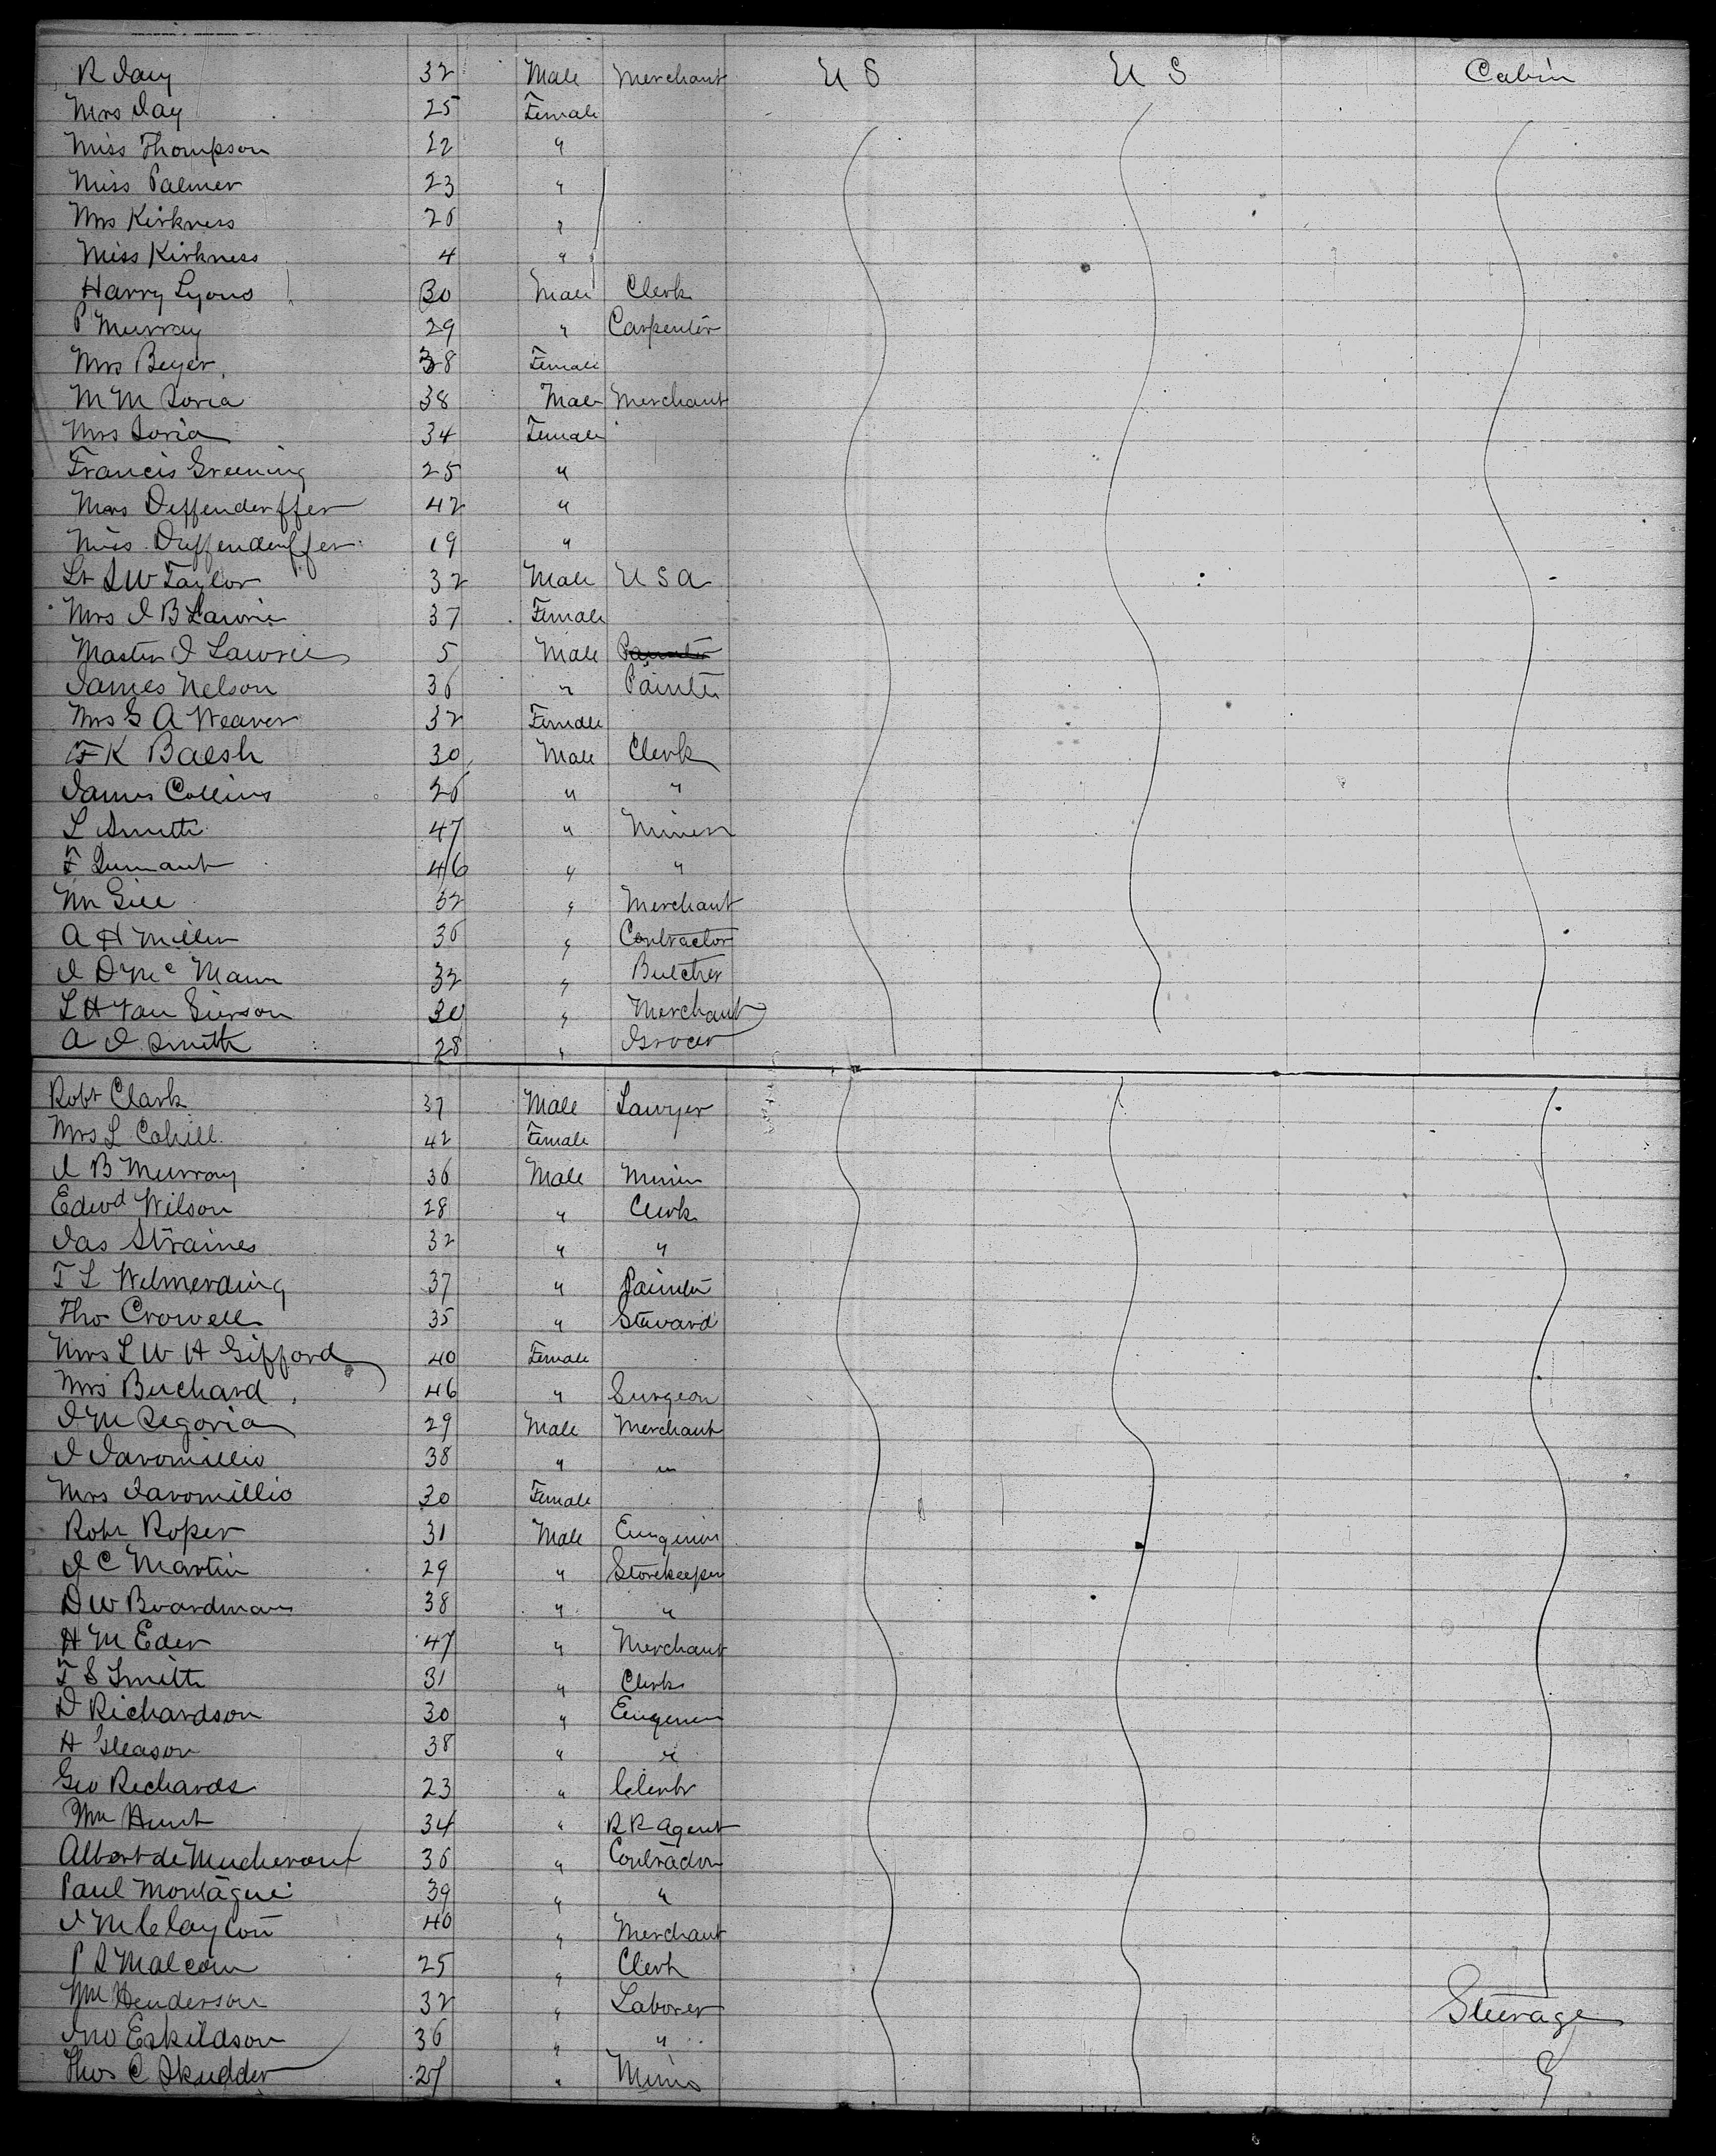 R Jay 32 Male Merchant U S U S Cabin
Mrs Jay 25 Female
Miss Thompson 22 "
Miss Palmer 23 "
Mrs Kirkness 26 "
Miss Kirkness 4 "
Harry Lyons 30 Male Clerk
P Murray 29 " Carpenter
Mrs Beyer 38 Female
M M Soria 38 Male Merchant
Mrs Soria 34 Female
Francis Greening 25 "
Mrs Deffenderffer 42 "
Miss Deffenderffer 19 "
Lt S W Taylor 32 Male U S A
Mrs J B Lawrie 37 Female
Master J Lawrie 5 Male
James Nelson 36 " Painter
Mrs G A Weaver 32 Female
F K Balsh 30 Male Clerk
James Collins 26 " "
L Smith 47 " Miner
F 46 " "
Wm Gill 32 " Merchant
A H Miller 36 " Contractor
J D McMann 32 " Butcher
L H Van Sierson 30 " Merchant
A J Smith 28 " Grocer
Robt Clark 37 Male Lawyer
Mrs L Cahill 42 Female
J B Murray 36 Male Miner
Edwd Wilson 28 " Clerk
Jas Straines 32 " "
T L Wilmerding 37 " Painter
Tho Crowell 35 " Steward
Mrs L W H Gifford 40 Female
Mrs Buchard 46 " Surgeon
J M Segovia 29 Male Merchant
J Jaromillio 38 " "
Mrs Jaromillio 30 Female
Robt Roper 31 Male Enginier
J C Martin 29 " Storekeeper
D W Boardman 38 " "
H M Eder 47 " Merchant
F S Smith 31 " Clerk
D Richardson 30 " Enginer
H Gleason 38 " "
Geo Richards 23 " Clerk
Wm Hunt 34 " R R Agent
Albert de 36 " Contractor
Paul Montague 39 " "
J M Clayton 40 " Merchant
P S Malcom 25 " Clerk
Wm Henderson 32 " Laborer Steerage
Jno Eskildson 36 " "
Thos C Skudder 27 " Miner "